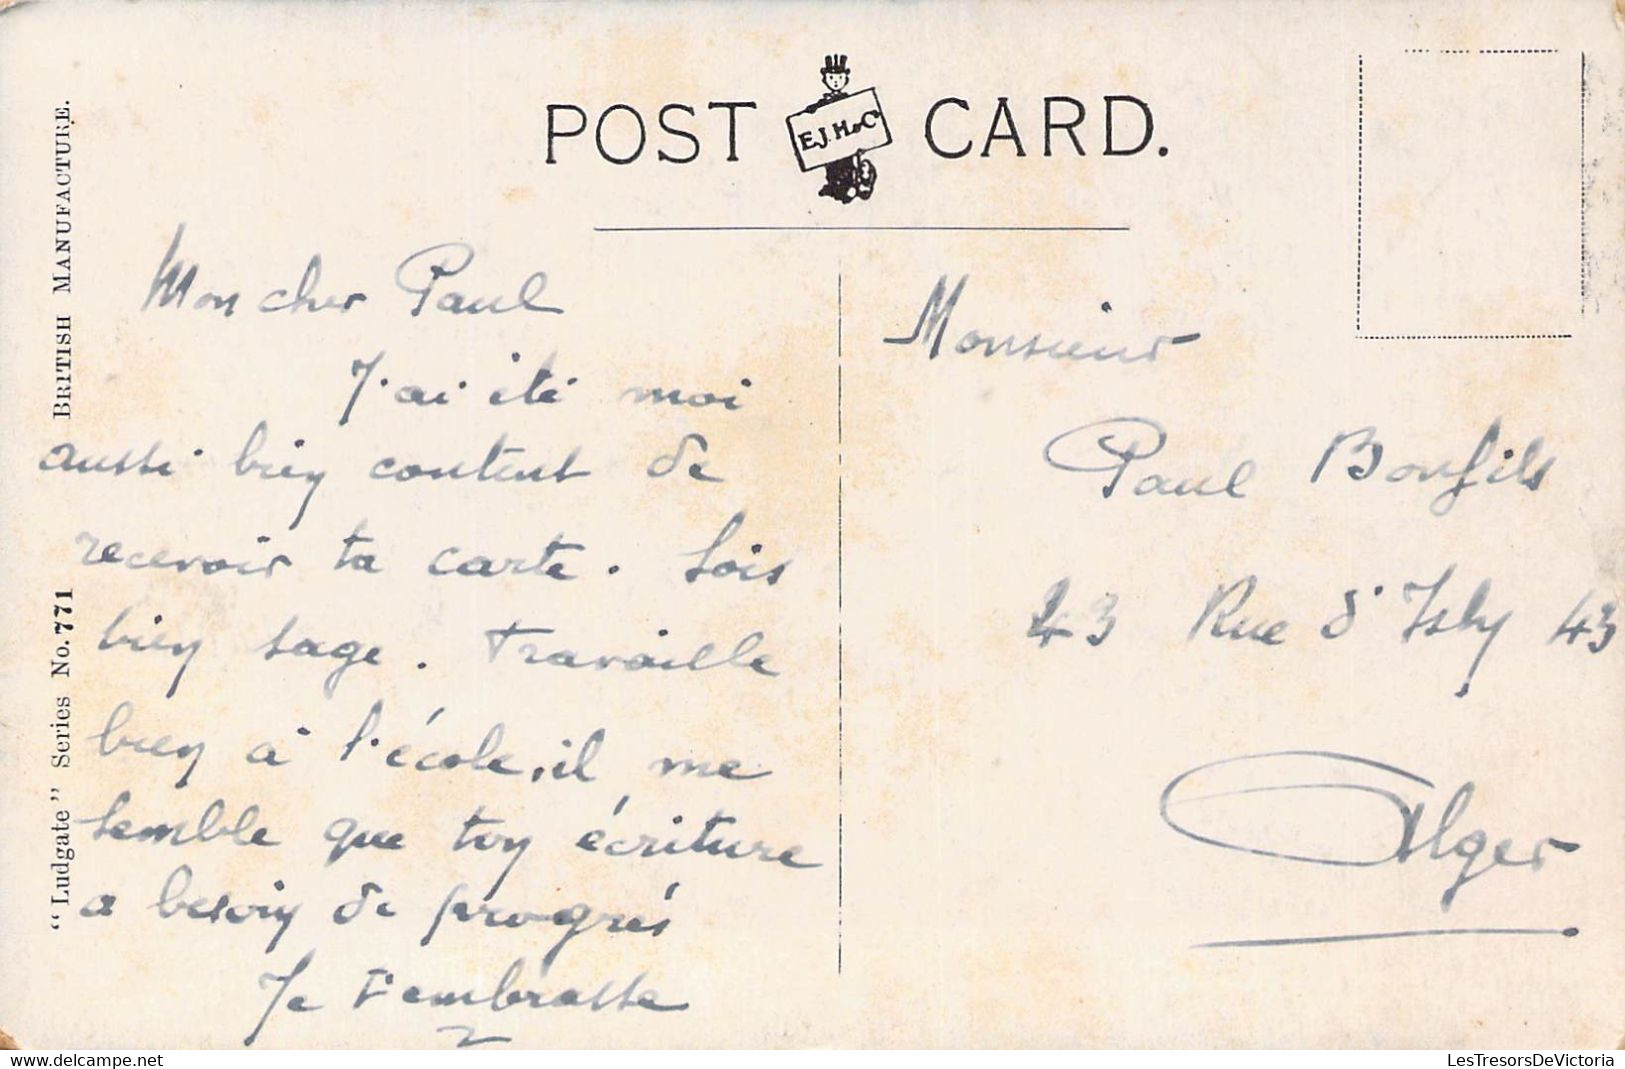 POST CARD.
E.J.H. & Co
"Ludgate" Series No. 771
BRITISH MANUFACTURE.
Mon cher Paul
J'ai été moi
aussi bien content de
recevoir ta carte. Sois
bien sage. Travaille
bien à l'école, il me
semble que ton écriture
a besoin de progrès
Je t'embrasse
Monsieur
Paul Bonfils
43 Rue d'Isly 43
Alger
LesTresorsDeVictoria
https://www.delcampe.net